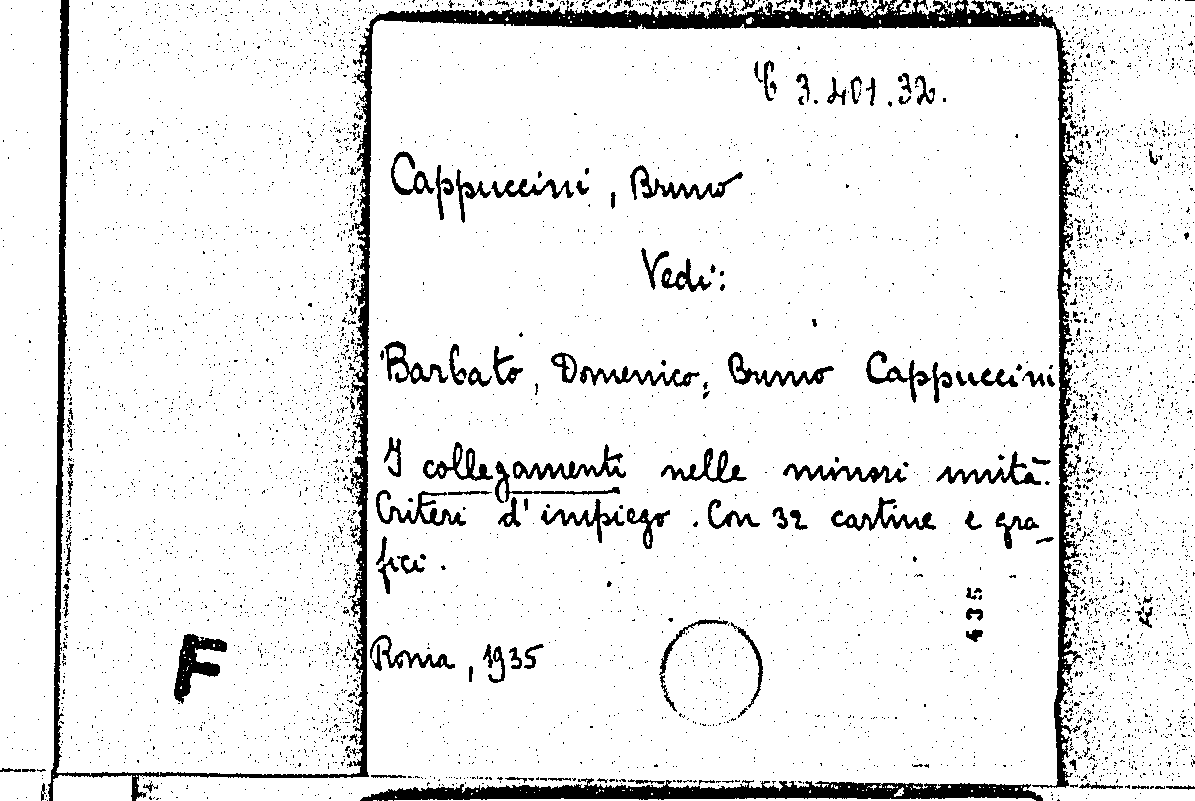 C 3.401.32.
Cappuccini, Bruno
Vedi:
Barbato, Domenico; Bruno Cappuccini
I collegamenti nelle minori unità.
Criteri d'impiego. Con 32 cartine e gra_
fici.
435
Roma, 1935
F